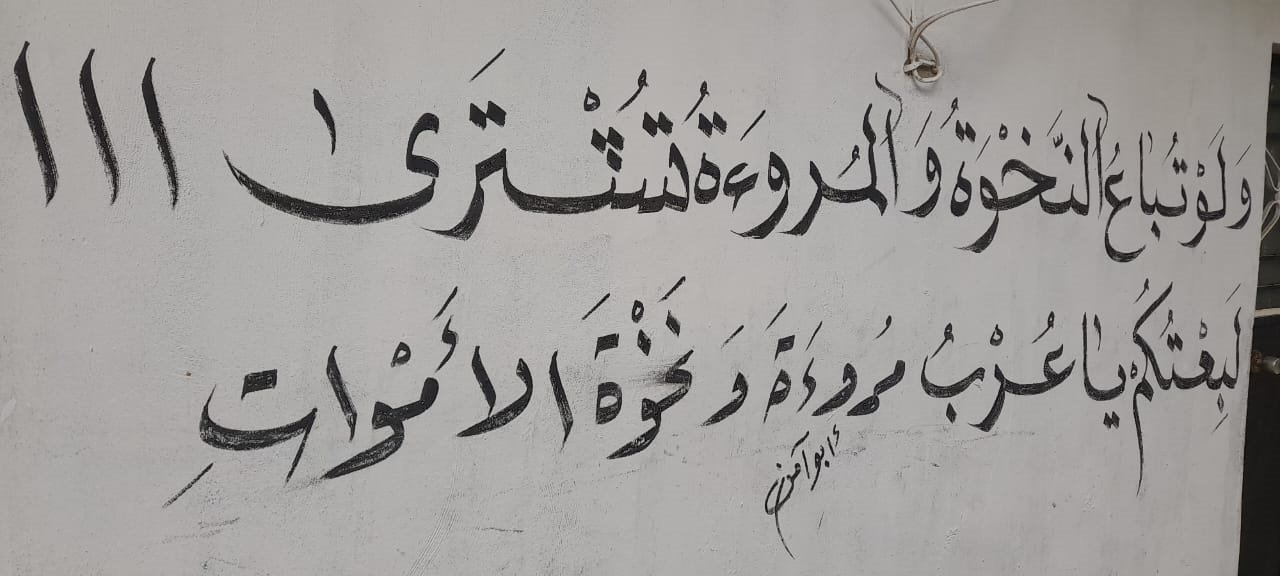 وَلَوْ تُباعُ النَّخْوَةُ وَالمُروءَةُ تُشْتَرَى !!!
لَبِعْتُكُمْ يا عُرْبُ مُروءَةَ وَ نَخْوَةَ الأمْواتِ